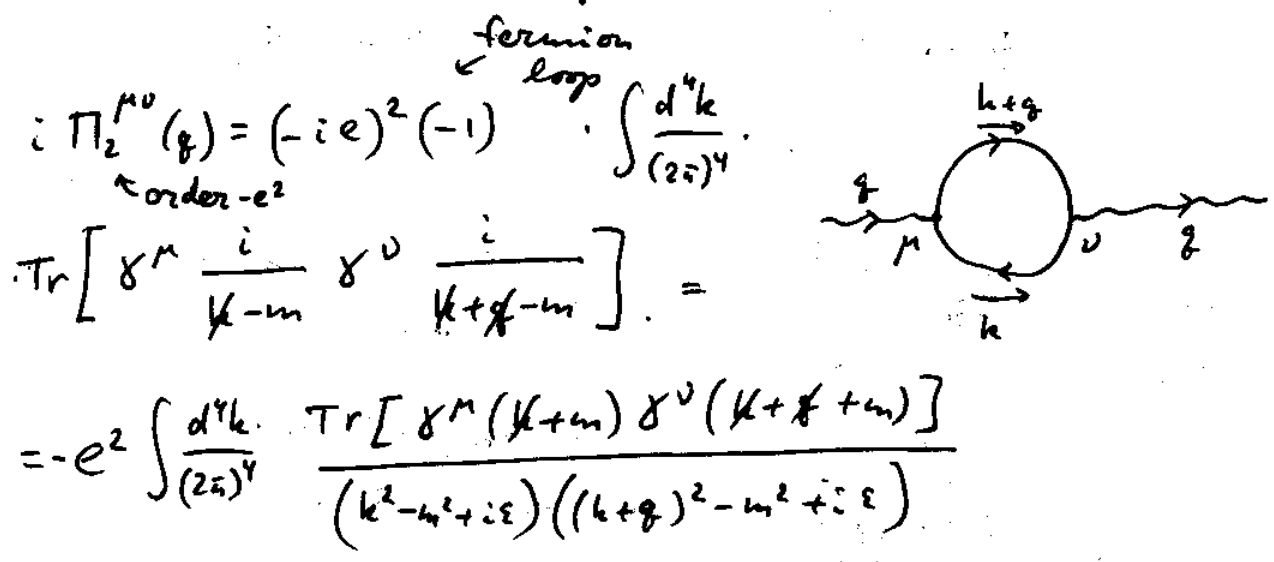 fermion
↙ loop
i Π₂^{μν}(q) = (-ie)² (-1) · ∫ d⁴k/(2π)⁴ ·
↖ order-e²
· Tr[ γ^μ i/(k̸-m) γ^ν i/(k̸+q̸-m) ]. =
= -e² ∫ d⁴k/(2π)⁴ · Tr[ γ^μ (k̸+m) γ^ν (k̸+q̸+m) ] / (k²-m²+iε)((k+q)²-m²+iε)
k+q
q
μ
ν
q
k